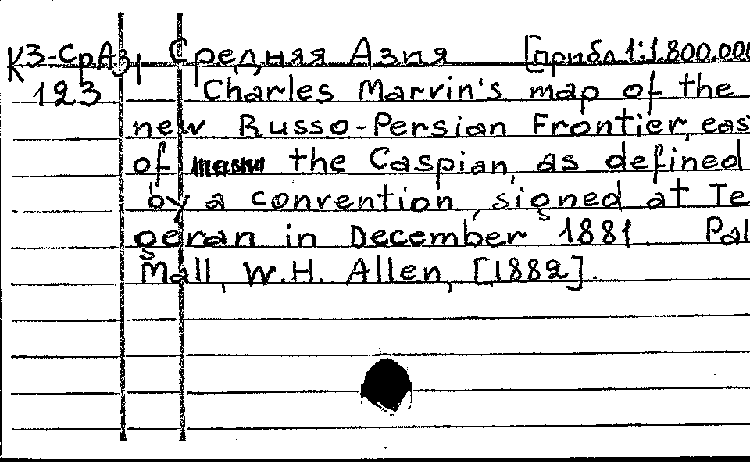 К3-СрАз, Средняя Азия [прибл. 1:1.800.000
123 Charles Marvin's map of the
new Russo-Persian Frontier, eas
of the Caspian, as defined
by a convention, signed at Te
geran in December 1881. Pal
Mall, W.H. Allen, [1882].